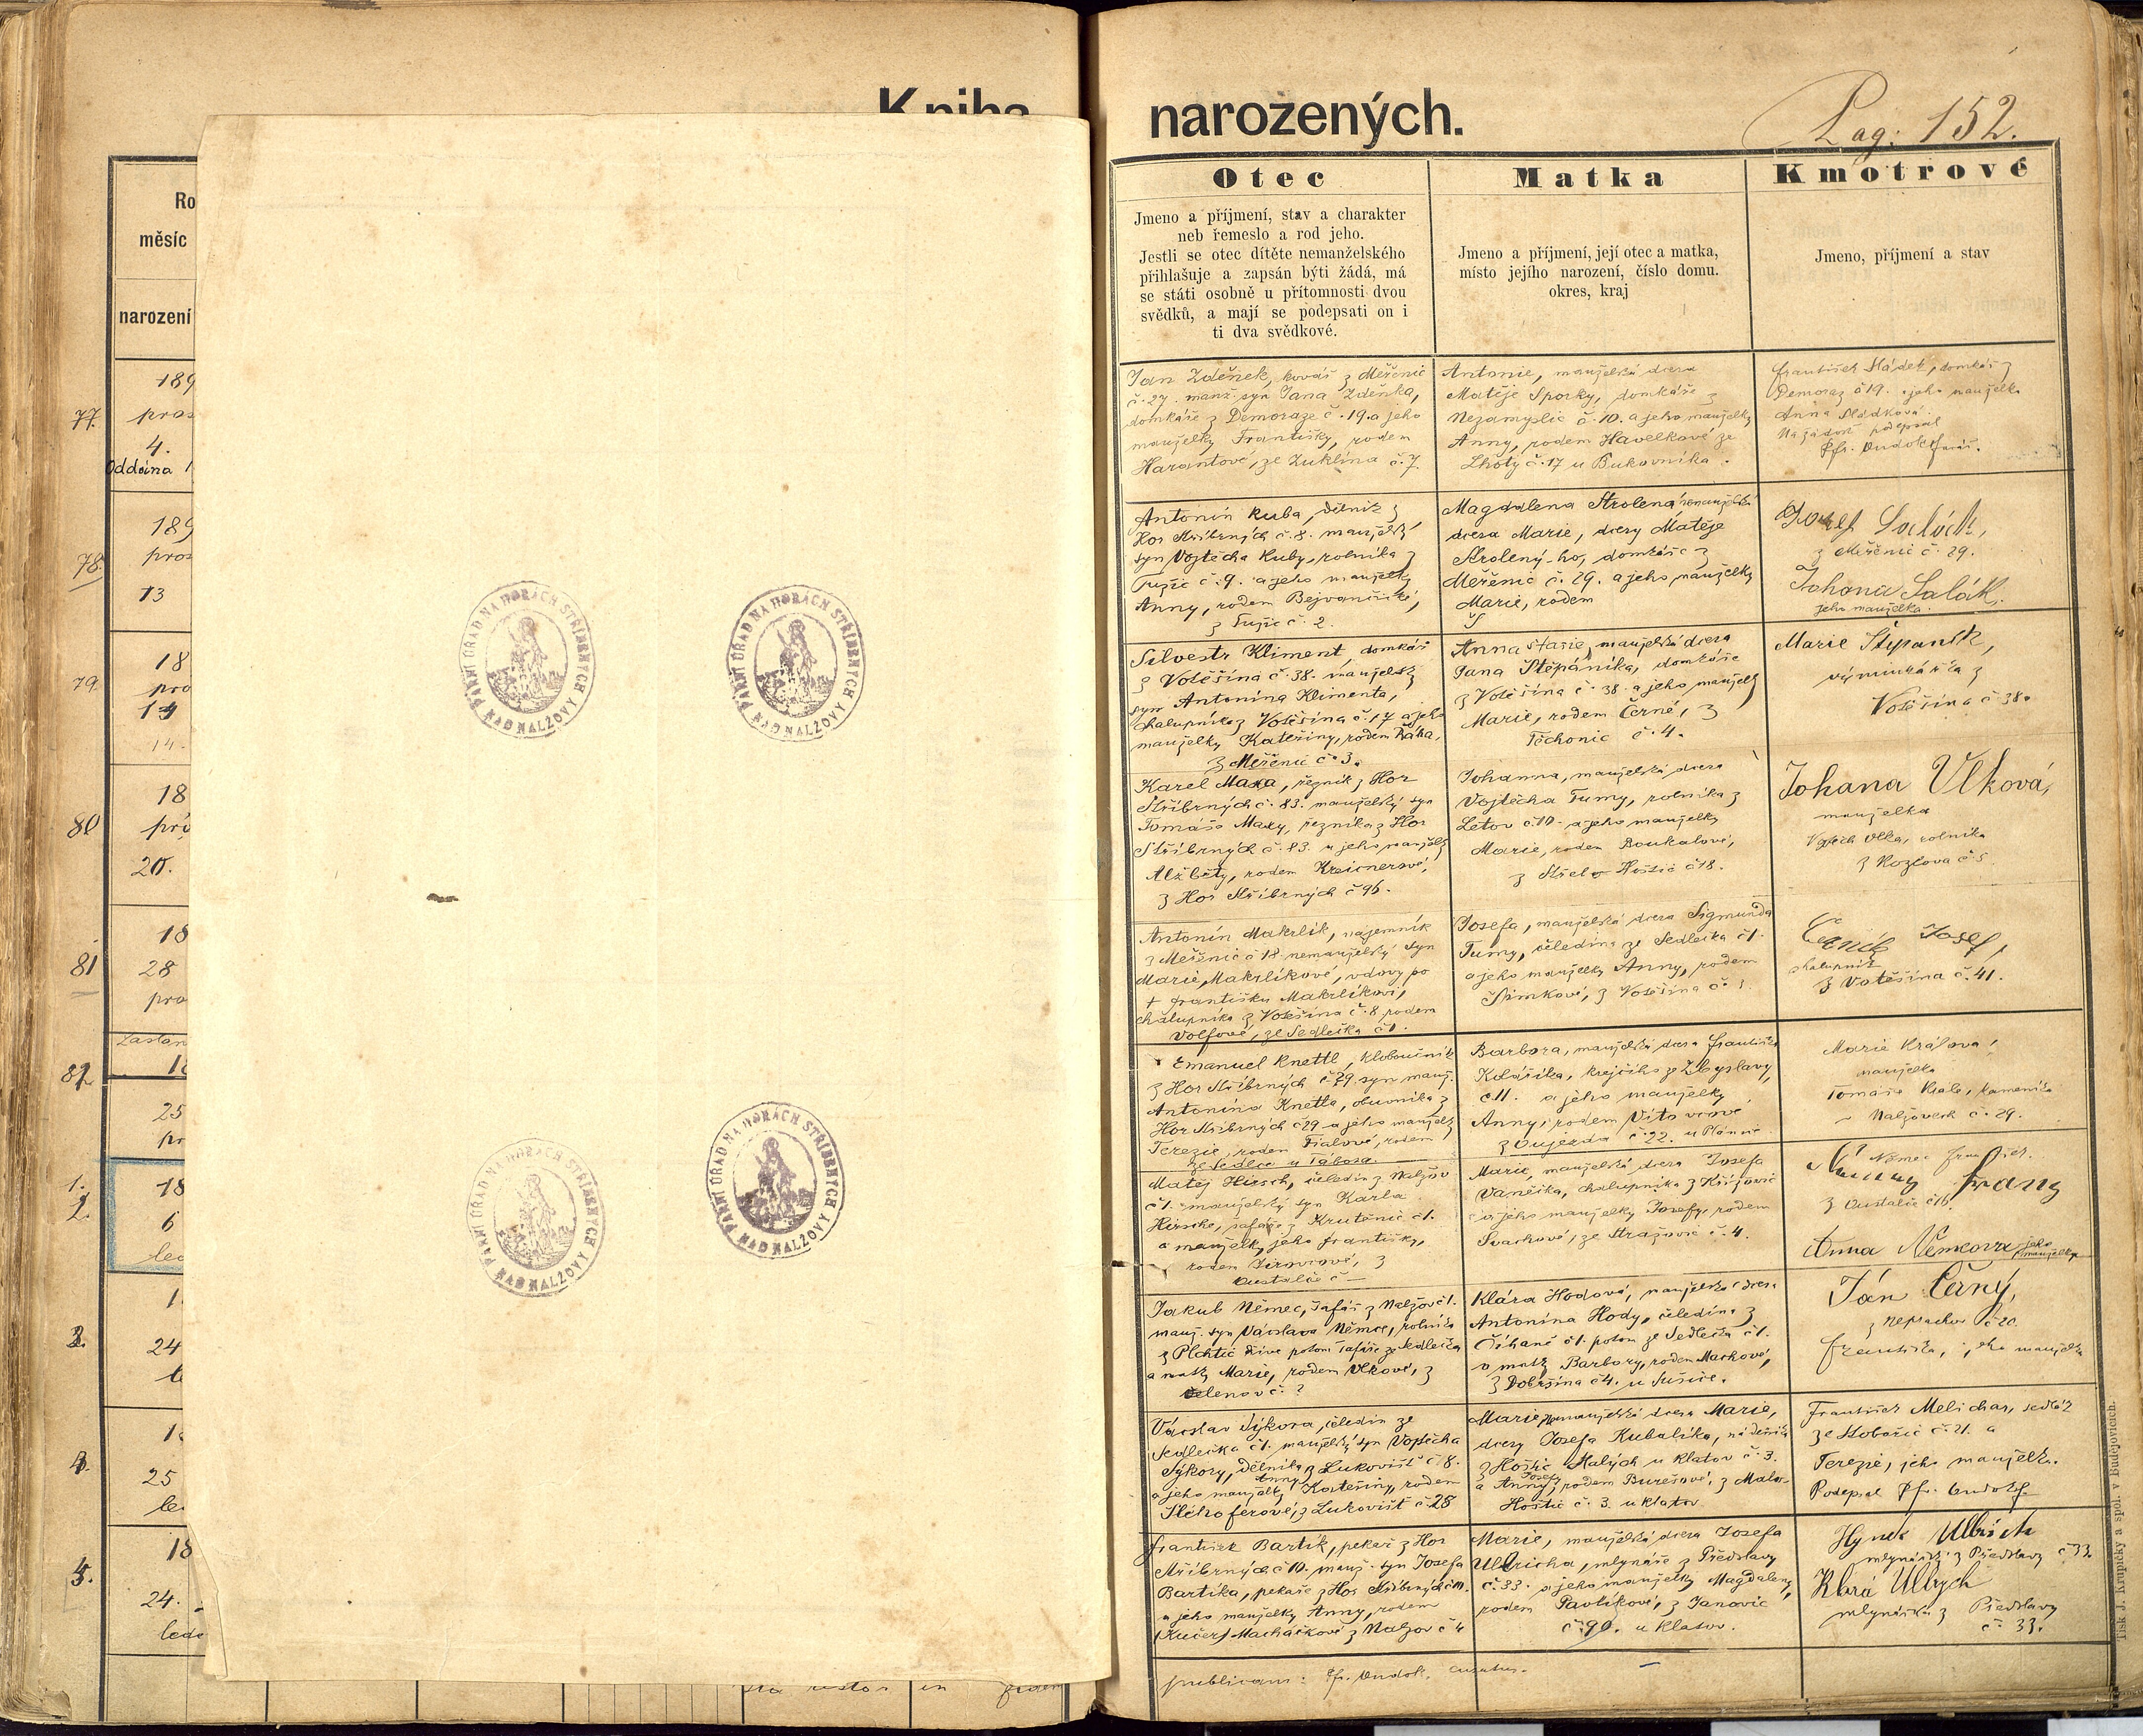 Kniha
narozených.
Pag: 152.
Ro
měsíc
narození
189
77.
pros
4.
Oddaina 1
189
78.
pros
13
18
79.
pro
14
14.
18
80
pro
20.
18
81
28
pro
Zaslan
18
82
25
pr
1.
2.
18
6
led
1
3.
24
l
1
4.
25
le
18
5.
24.
led
PÁRNÍ ÚŘAD NA HORÁCH STŘÍBRNÝCH NAD NALŽOVY
PÁRNÍ ÚŘAD NA HORÁCH STŘÍBRNÝCH NAD NALŽOVY
PÁRNÍ ÚŘAD NA HORÁCH STŘÍBRNÝCH NAD NALŽOVY
PÁRNÍ ÚŘAD NA HORÁCH STŘÍBRNÝCH NAD NALŽOVY
Otec
Jmeno a příjmení, stav a charakter
neb řemeslo a rod jeho.
Jestli se otec dítěte nemanželského
přihlašuje a zapsán býti žádá, má
se státi osobně u přítomnosti dvou
svědků, a mají se podepsati on i
ti dva svědkové.
Matka
Jmeno a příjmení, její otec a matka,
místo jejího narození, číslo domu.
okres, kraj
Kmotrové
Jmeno, příjmení a stav
Jan Zděnek, kovář z Měřenic
č. 27. manž. syn Jana Zdeňka,
domkáře z Demoraze č. 19. a jeho
manželky Františky, rodem
Harantové, ze Zuklína č. 7.
Antonie, manželská dcera
Matěje Sporky, domkáře z
Nezamyslic č. 10. a jeho manželky
Anny, rodem Havelkové ze
Lhoty č. 17 u Bukovníka.
František Sládek, domkář z
Demoraz č 19. a jeho manželka
Anna Sládková.
Na žádost podepsal
Antonín Kuba, dělník z
Hor Stříbrných č. 8. manželský
syn Vojtěcha Kuby, rolníka z
Tužic č. 9. a jeho manželky
Anny, rodem
z Tužic č. 2.
Magdalena Strolená, nemanželská
dcera Marie, dcery Matěje
Strolený-ho, domkáře z
Měřenic č. 29. a jeho manželky
Marie, rodem
Josef Salák,
z Měřenic č. 29.
Johana Salák.
jeho manželka.
Silvestr Kliment, domkář
z Volešina č. 38. manželský
syn Antonína Klimenta,
chalupníka z Volešina č. 17 a jeho
manželky Kateřiny, rodem
z Měřenic č. 3.
Anna manželská dcera
Jana Štěpánika, domkáře
z Volešina č. 38. a jeho manželky
Marie, rodem Černé, z
Těchonic č. 4.
Marie Štěpanik,
výminkářka z
Volešina č 38.
Karel Maxa, řezník z Hor
Stříbrných č. 83. manželský syn
Tomáše Maxy, řezníka z Hor
Stříbrných č. 83. a jeho manželky
Alžběty, rodem
z Hor Stříbrných č 96.
Johanna, manželská dcera
Vojtěcha Tumy, rolníka z
Letov č 10. a jeho manželky
Marie, rodem Boukalové,
z Střelo Hoštic č 18.
Johana Vlková,
manželka
Vojtěch Vlka, rolníka
z Kozčova č 5
Antonín Makrlík, najemník
z Měřenic č 18. nemanželský syn
Marie Makrlíkové, vdovy po
† Františku Makrlíkovi,
chalupníka z Volešina č. 8 rodem
Volfové, ze Sedlečka č 1.
Josefa, manželská dcera Sigmunda
Tumy, čeledína ze Sedlečka č 1.
a jeho manželky Anny, rodem
Šimkové, z Volešina č.
Josef,
chalupník
z Volešina č. 41.
Emanuel Knettl, kloboučník
z Hor Stříbrných č 29. syn manž.
Antonína Knettla, obuvníka z
Hor Stříbrných č 29 a jeho manželky
Terezie, rodem Fialové, rodem
ze Sedlce u Tábora.
Barbora, manželská dcera Františka
Kolářika, krejčího ze Zbyslavy,
č 11. a jeho manželky
Anny, rodem
z Oujezda č. 22. u Plánice
Marie Králova,
manželka
Tomáše Krále, kameníka
Nalžovech č. 29.
Matěj Hirsch, čeledín z Nalžov
č 1. manželský syn Karla
Hirsche, šafáře z Krutěnic č 1.
a manželky jeho Františky,
rodem z
č —
Marie, manželská dcera Josefa
Vaněčka, chalupníka z
a jeho manželky Josefy, rodem
Svachové, ze Strážovic č. 4.
Němec
Franz
Anna Němcova jeho manželka
Jakub Němec, šafář z Nalžov č 1.
manž. syn Václava Němce, rolníka
z Plchtic dříve potom šafáře ze Sedlečka
a matky Marie, rodem Vlkové, z
Želenov č. ?
Klára Hodová, manželská dcera
Antonína Hody, čeledína z
Číhaně č 1. potom ze Sedlečka č 1.
a matky Barbory, rodem Machové,
z Dobršína č 4. u Sušice.
Ján Černý,
č 20.
Františka, jeho manželka
Václav Sýkora, čeledín ze
Sedlečka č 1. manželský syn Vojtěcha
Sýkory, dělníka z Lukovišť č 8.
a jeho manželky Anny Kateřiny, rodem
z Lukovišť č 28
Marie, nemanželská dcera Marie,
dcery Josefa Kubalíka, nádeníka
z Hoštic Malých u Klatov č. 3.
a Anny Josefy, rodem Burešové, z Malo-
Hoštic č. 3. u Klatov
František Melichar, sedlák
ze Hobořic č. 21. a
Terezie, jeho manželka.
Podepsal
František Bartík, pekař z Hor
Stříbrných č 10. manž. syn Josefa
Bartíka, pekaře z Hor Stříbrných č 10.
a jeho manželky Anny, rodem
(Kučer) Macháčkové z Nalžov č 4
Marie, manželská dcera Josefa
Ullricha, mlynáře z Předslavy
č. 33. a jeho manželky Magdaleny,
rodem Pavlíkové, z Janovic
č. 90. u Klatov.
Hynek Ulbrich
mlynářský z Předslavy č 33.
Klará Ulbrych
mlynářka z Předslavy
č. 33.
publicavi:
in
Tisk J. Krupičky a spol. v Budějovicích.